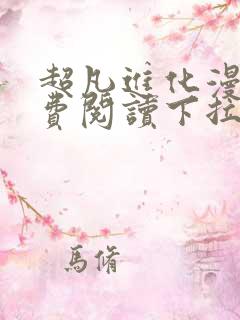 超凡進化漫
費閱讀下拉
馬脩